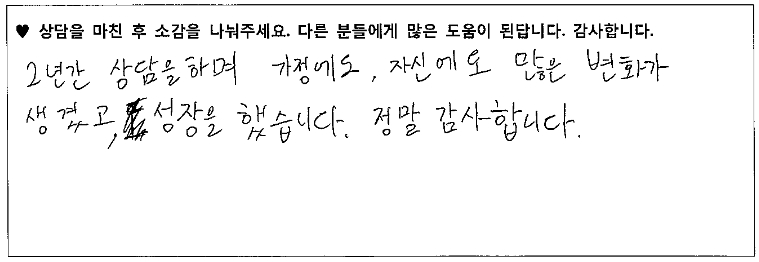 ♥ 상담을 마친 후 소감을 나눠주세요. 다른 분들에게 많은 도움이 된답니다. 감사합니다.
2년간 상담을하며 가정에도, 자신에도 많은 변화가
생겼고, 성장을 했습니다. 정말 감사합니다.